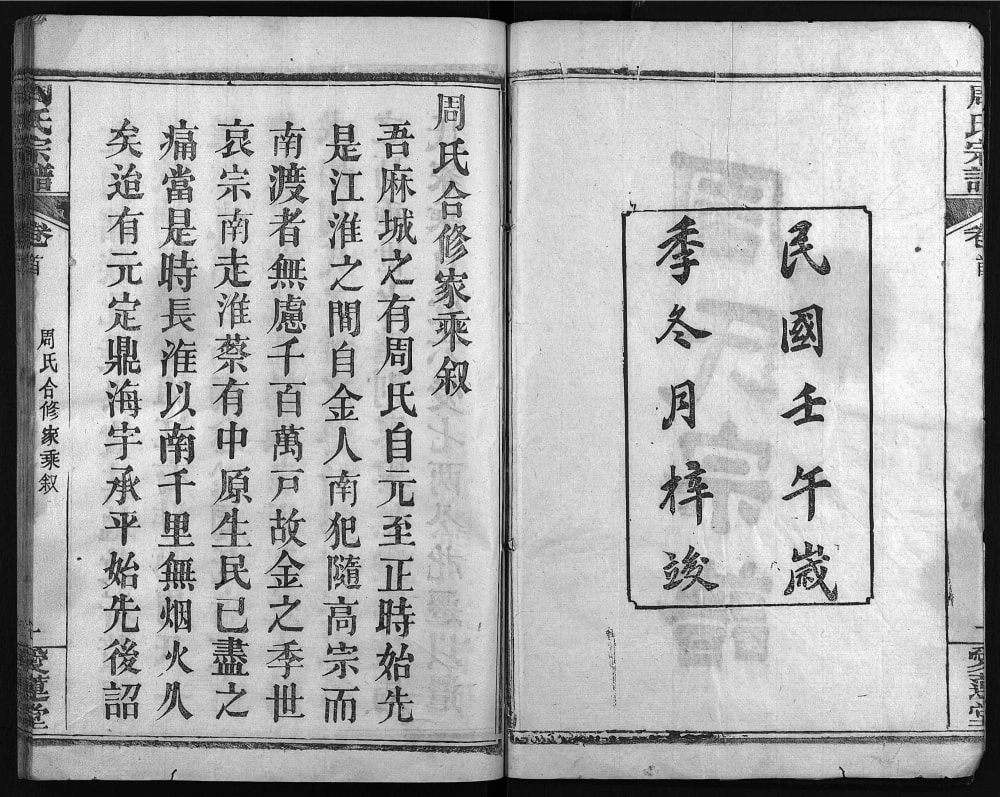 周氏宗譜
卷首
愛蓮堂
民國壬午歲
季冬月梓竣
周氏合修家乘叙
吾麻城之有周氏自元至正時始先
是江淮之間自金人南犯隨高宗而
南渡者無慮千百萬戸故金之季世
哀宗南走淮蔡有中原生民已盡之
痛當是時長淮以南千里無烟火久
矣迨有元定鼎海宇承平始先後詔
周氏宗譜
卷首
周氏合修家乘叙
愛蓮堂